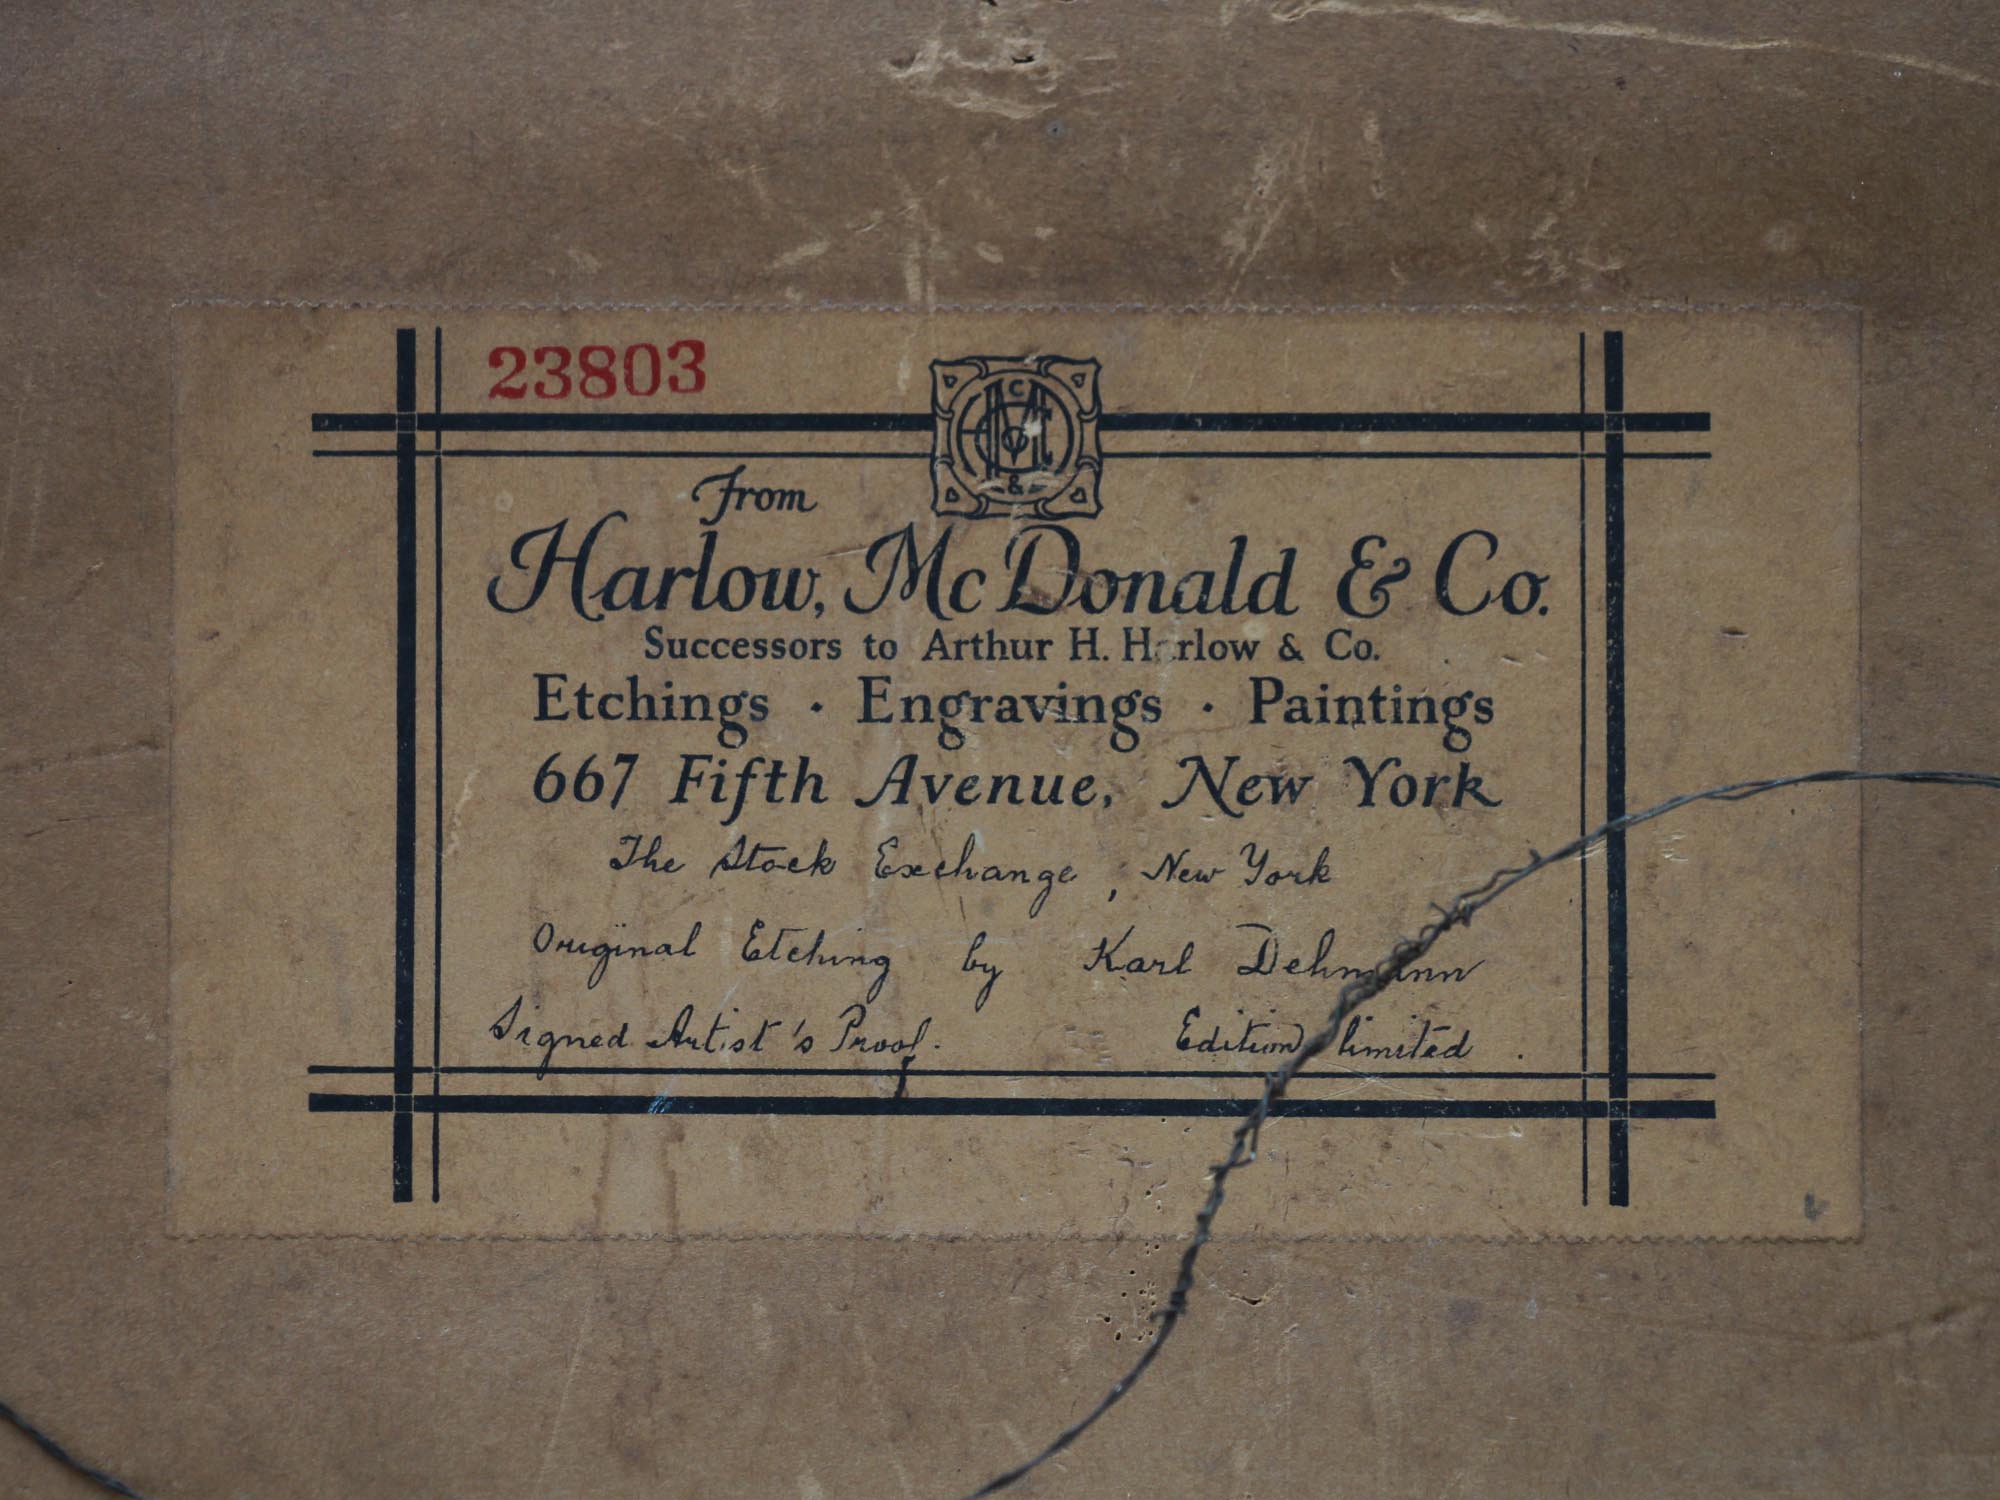 23803
C
&
From
Harlow, McDonald & Co.
Successors to Arthur H. Harlow & Co.
Etchings · Engravings · Paintings
667 Fifth Avenue, New York
The Stock Exchange, New York
Original Etching by Karl Dehmann
Signed Artist's Proof. Edition limited.